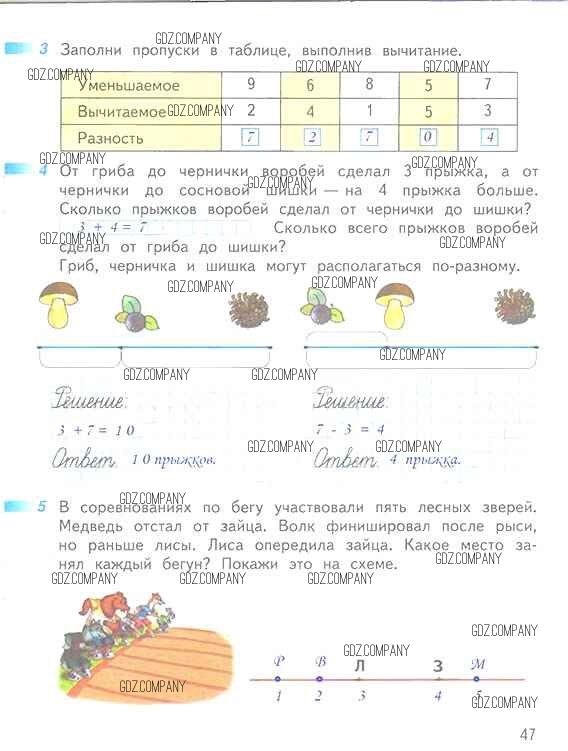 GDZ.COMPANY
3 Заполни пропуски в таблице, выполнив вычитание.
GDZ.COMPANY GDZ.COMPANY GDZ.COMPANY
Уменьшаемое 9 6 8 5 7
Вычитаемое GDZ.COMPANY 2 4 1 5 3
Разность 7 2 7 0 4
GDZ.COMPANY
4 От гриба до чернички воробей сделал 3 прыжка, а от
GDZ.COMPANY
чернички до сосновой шишки — на 4 прыжка больше.
Сколько прыжков воробей сделал от чернички до шишки?
3 + 4 = 7 Сколько всего прыжков воробей
GDZ.COMPANY GDZ.COMPANY
сделал от гриба до шишки?
Гриб, черничка и шишка могут располагаться по-разному.
GDZ.COMPANY GDZ.COMPANY
GDZ.COMPANY
GDZ.COMPANY GDZ.COMPANY
Решение: Решение:
3 + 7 = 10 7 - 3 = 4
GDZ.COMPANY
Ответ. 10 прыжков. Ответ. 4 прыжка.
GDZ.COMPANY
5 В соревнованиях по бегу участвовали пять лесных зверей.
GDZ.COMPANY
Медведь отстал от зайца. Волк финишировал после рыси,
но раньше лисы. Лиса опередила зайца. Какое место за-
GDZ.COMPANY
нял каждый бегун? Покажи это на схеме.
GDZ.COMPANY GDZ.COMPANY GDZ.COMPANY
GDZ.COMPANY
GDZ.COMPANY
Р В Л З М
GDZ.COMPANY
1 2 3 4 5
GDZ.COMPANY
47